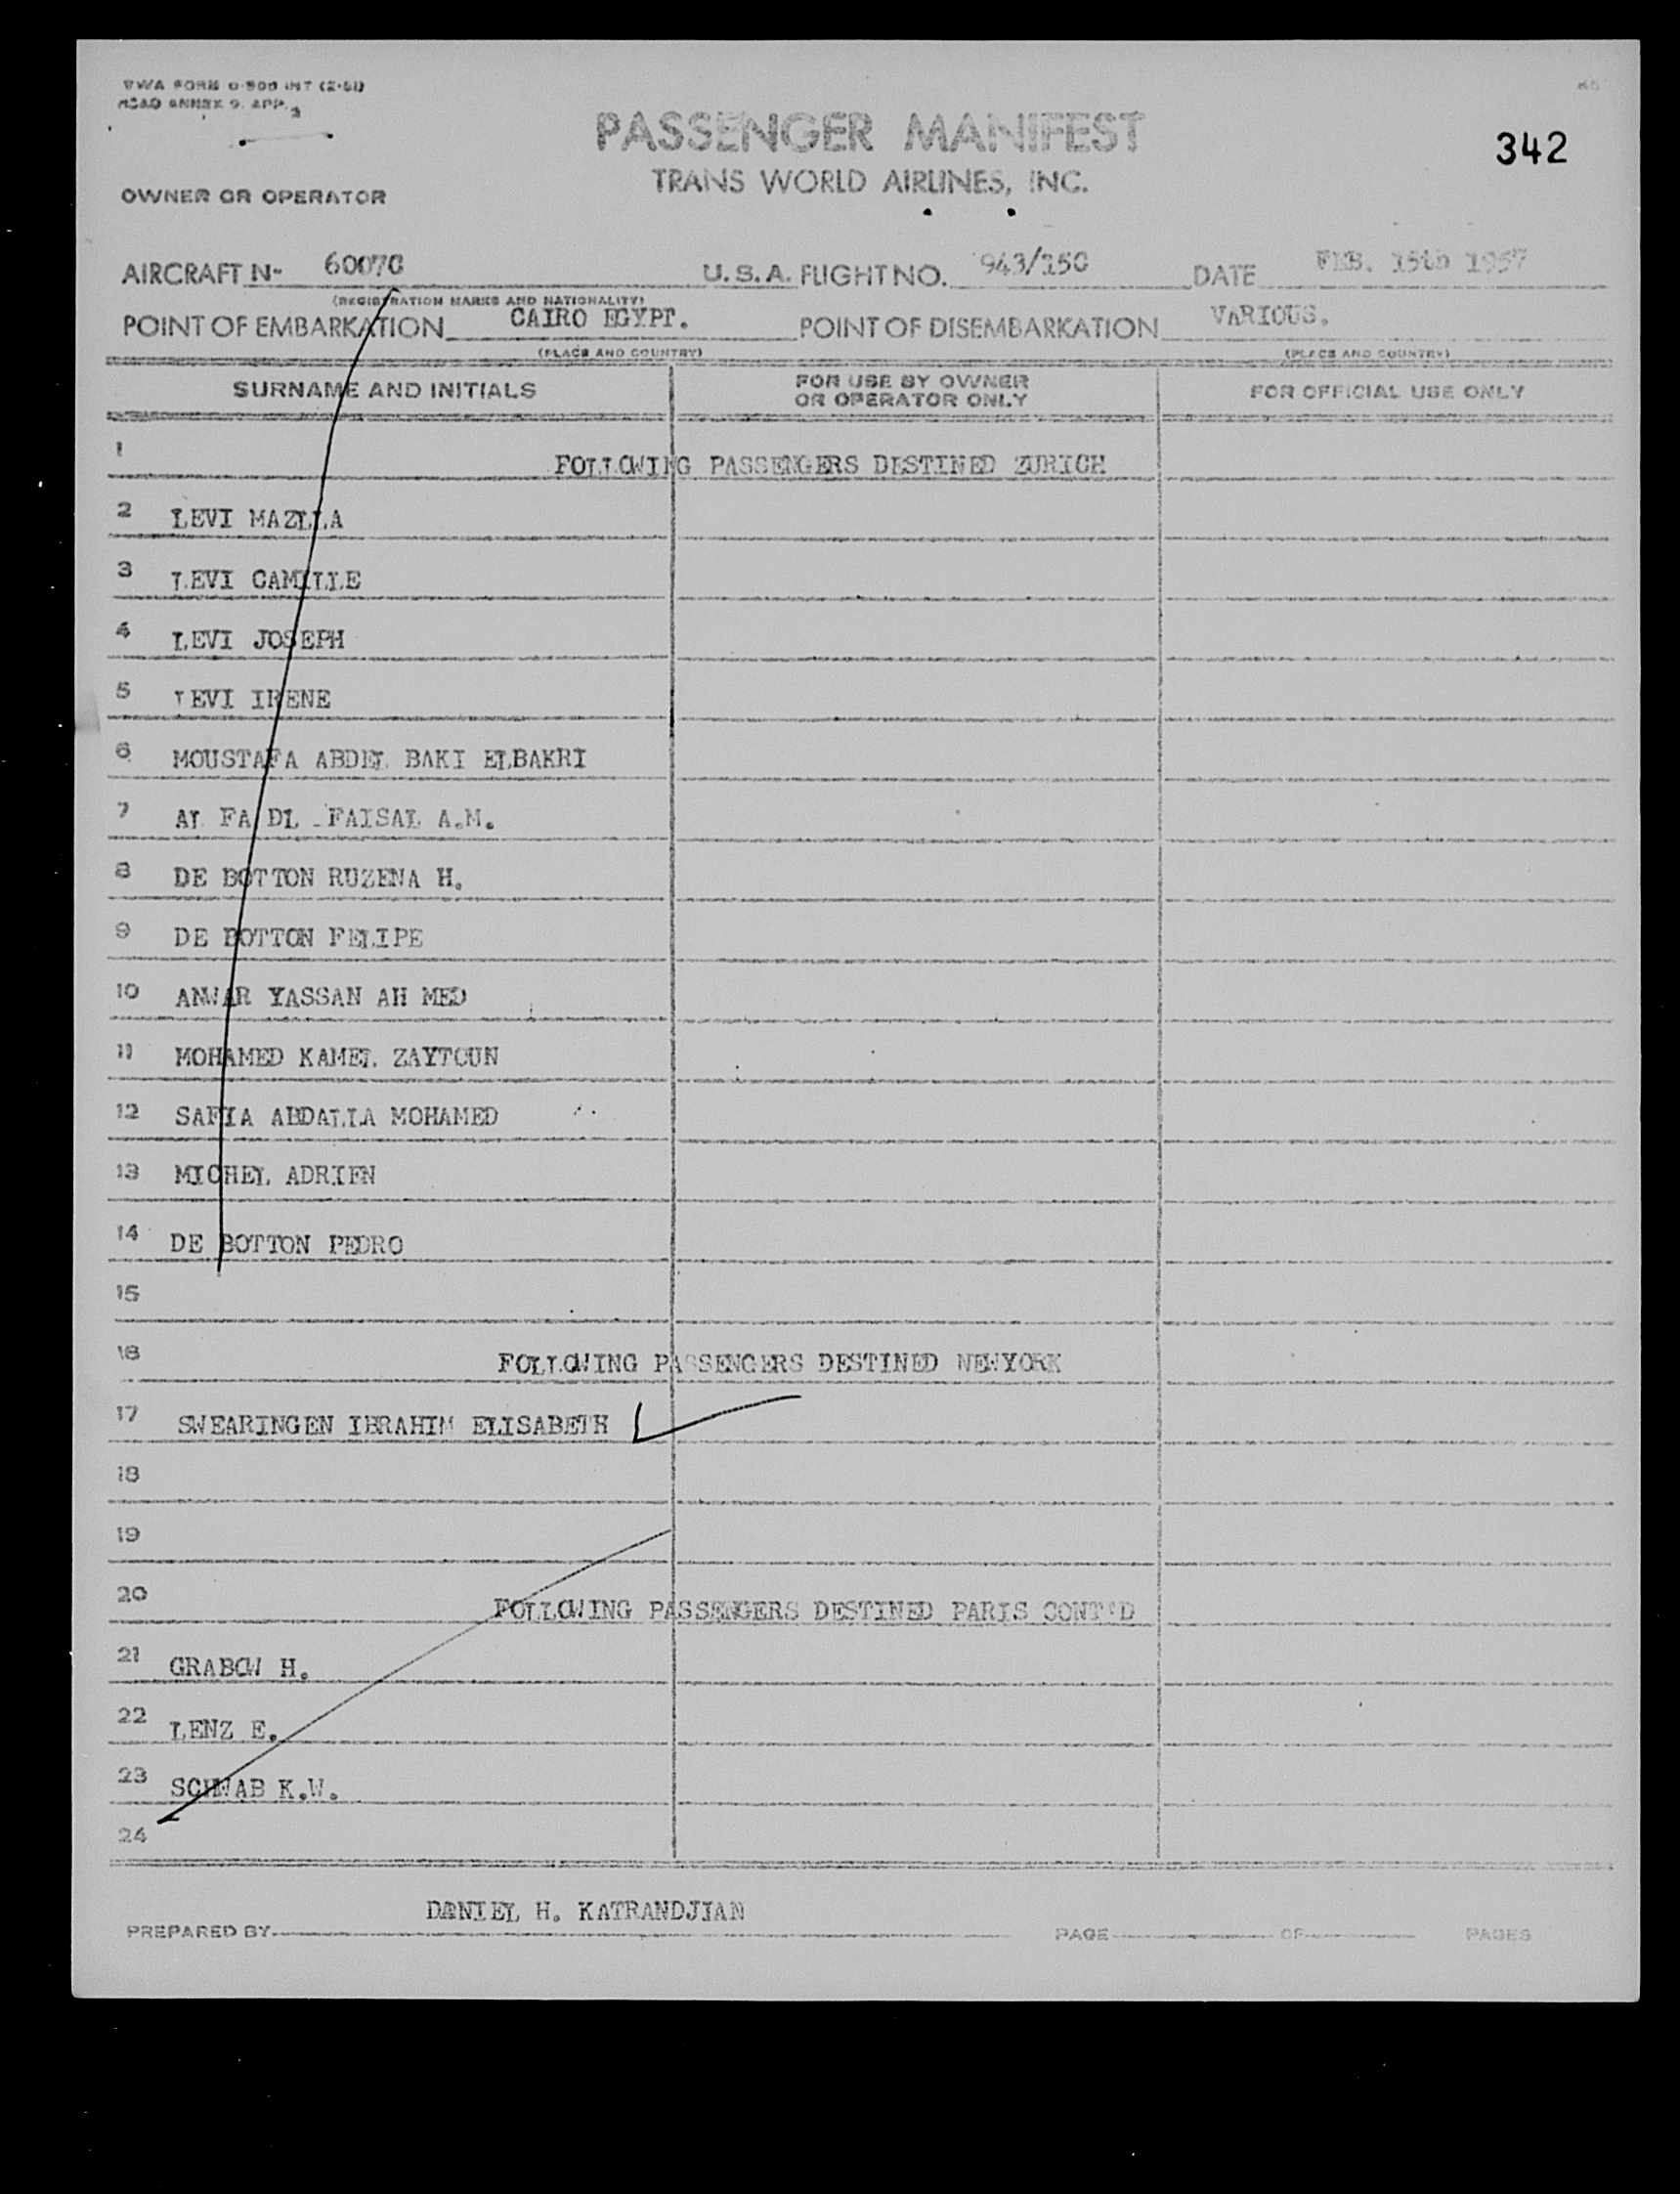 TWA FORM O-500 INT (2-51)
ICAO ANNEX 9. APP. 3
PASSENGER MANIFEST
342
TRANS WORLD AIRLINES, INC.
OWNER OR OPERATOR
AIRCRAFT N- 6007C U.S.A. FLIGHT NO. 943/15C DATE FEB. 15th 1957
(REGISTRATION MARKS AND NATIONALITY)
POINT OF EMBARKATION CAIRO EGYPT. POINT OF DISEMBARKATION VARIOUS.
(PLACE AND COUNTRY) (PLACE AND COUNTRY)
SURNAME AND INITIALS FOR USE BY OWNER OR OPERATOR ONLY FOR OFFICIAL USE ONLY
1 FOLLOWING PASSENGERS DESTINED ZURICH
2 LEVI MAZLLA
3 LEVI CAMILLE
4 LEVI JOSEPH
5 LEVI IRENE
6 MOUSTAFA ABDEL BAKI ELBAKRI
7 AL FA DL FAISAL A.M.
8 DE BOTTON RUZENA H.
9 DE BOTTON FELIPE
10 ANWAR YASSAN AH MED
11 MOHAMED KAMEL ZAYTOUN
12 SAFIA ABDALLA MOHAMED
13 MICHEL ADRIEN
14 DE BOTTON PEDRO
15
16 FOLLOWING PASSENGERS DESTINED NEWYORK
17 SWEARINGEN IBRAHIM ELISABETH
18
19
20 FOLLOWING PASSENGERS DESTINED PARIS CONT'D
21 GRABOW H.
22 LENZ E.
23 SCHWAB K.W.
24
DANIEL H. KATRANDJIAN
PREPARED BY PAGE OF PAGES